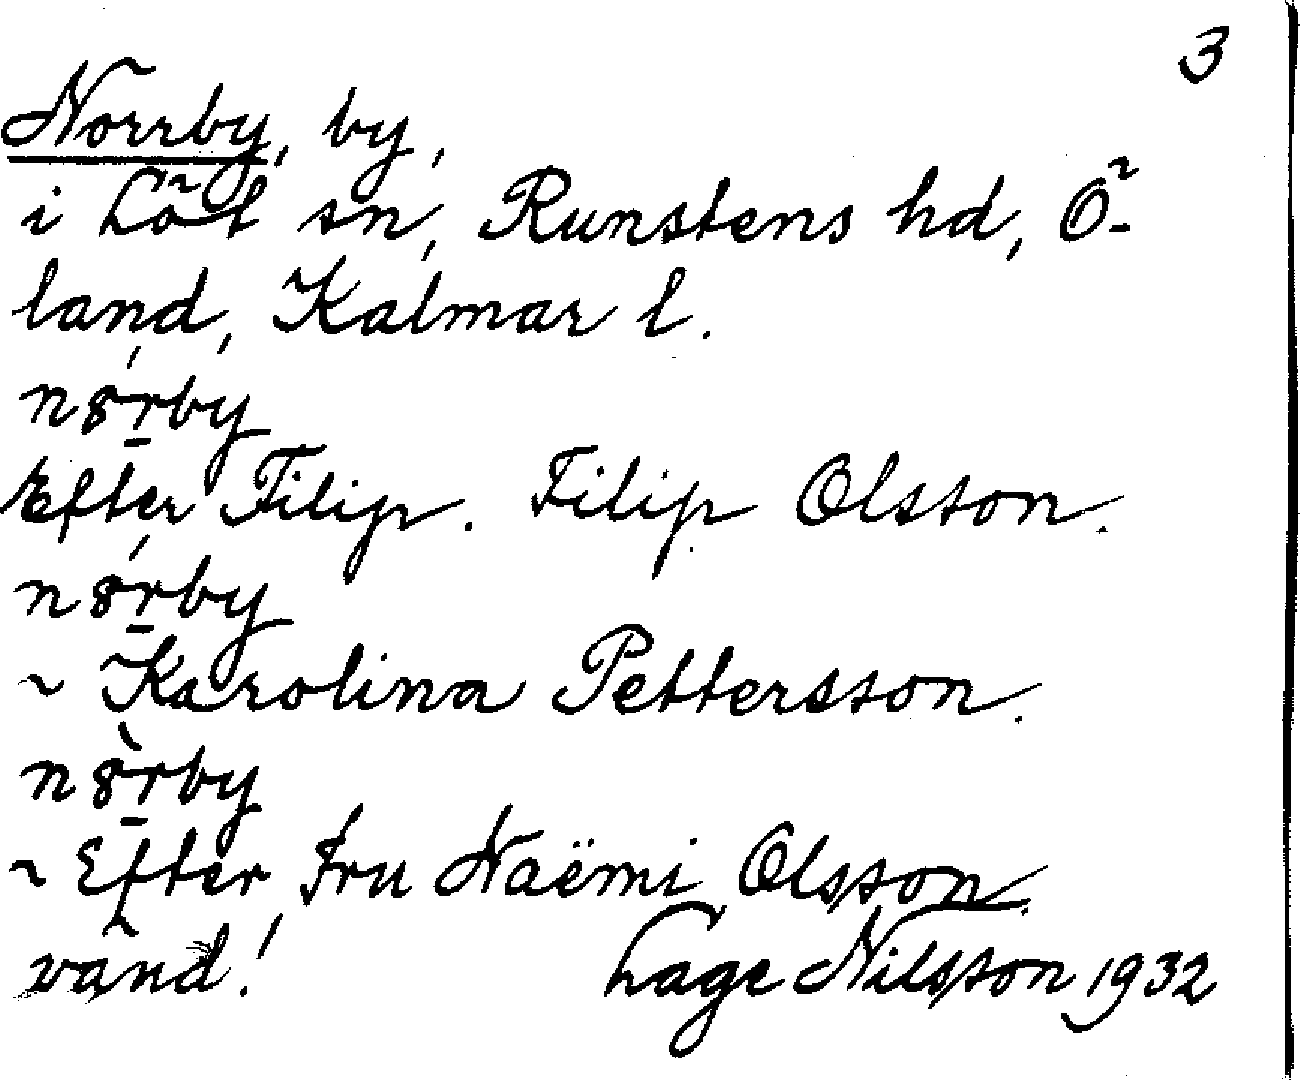 3
Norrby, by,
i Löt sn, Runstens hd, Ö-
land, Kalmar l.
nȣ́ṟby
Efter Filip. Filip Olsson.
nȣ́ṟby
~ Karolina Pettersson.
nȣ̀ṟby
~ Efter Fru Naëmi Olsson.
vänd! Lage Nilsson 1932